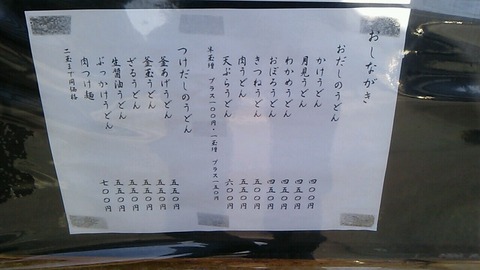 おしながき
おだしのうどん
かけうどん 四〇〇円
月見うどん 四五〇円
わかめうどん 四五〇円
おぼろうどん 四五〇円
きつねうどん 五〇〇円
肉うどん 五五〇円
天ぷらうどん 六〇〇円
半玉増 プラス一〇〇円・一玉増 プラス一五〇円
つけだしのうどん
釜あげうどん 五五〇円
釜玉うどん 五五〇円
ざるうどん 五五〇円
生醤油うどん 五五〇円
ぶっかけうどん 五五〇円
肉つけ麺 七〇〇円
二玉まで同価格